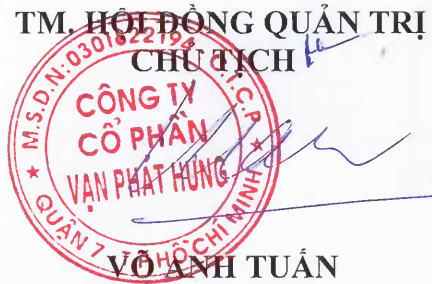 TM. HỘI ĐỒNG QUẢN TRỊ
CHỦ TỊCH
M.S.D.N: 0301822194 C.T.C.P
CÔNG TY
CỔ PHẦN
VẠN PHÁT HƯNG
QUẬN 7 T.P HỒ CHÍ MINH
VÕ ANH TUẤN